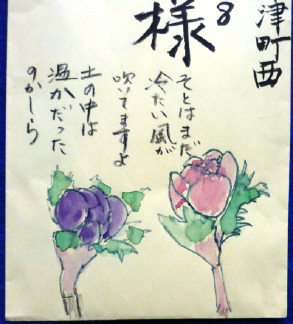 津町西
8
様
そとはまだ
冷たい風が
吹いてますよ
土の中は
温かだった
のかしら